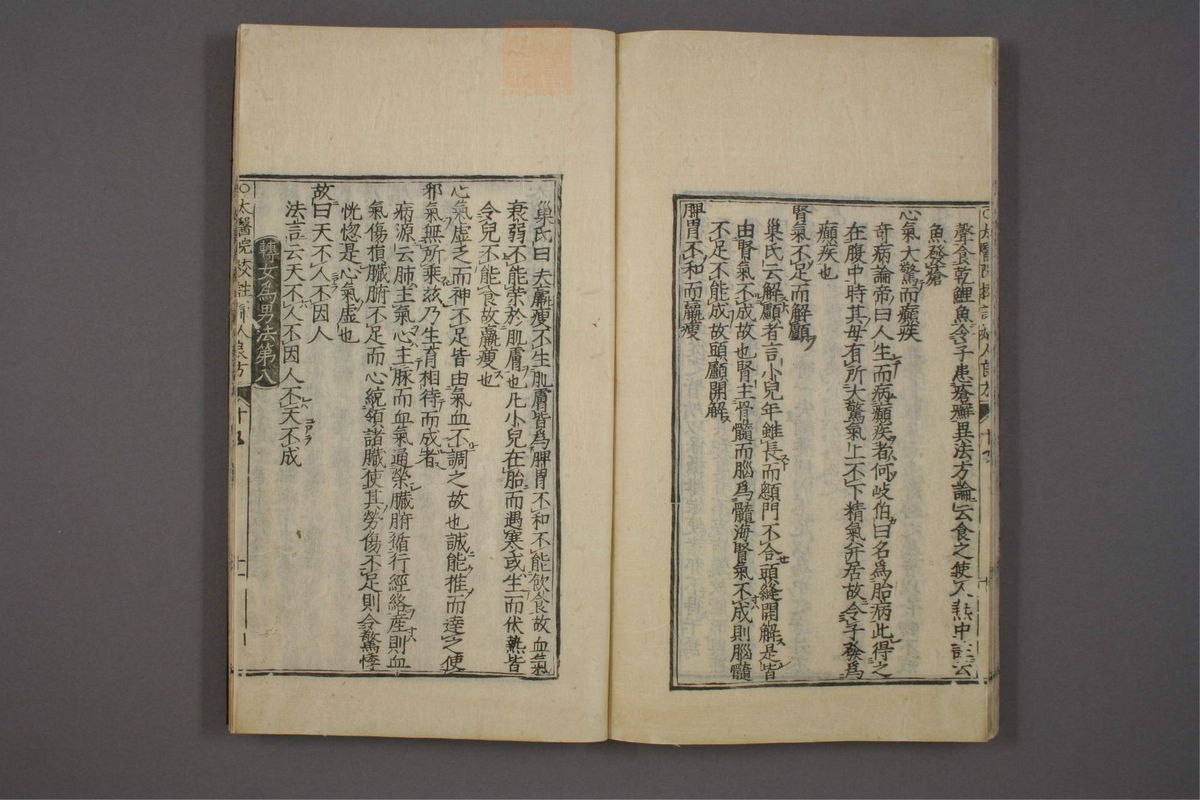 聲食乾鯉魚令子患瘡癬異法方論云食之使人熱中註云
魚發瘡
心氣大驚而癲疾
竒病論帝曰人生而病癲疾者何岐伯曰名爲胎病此得之
在腹中時其母有所大驚氣上不下精氣并居故令子發爲
癲疾也
腎氣不足而解顱
巢氏云解顱者言小兒年雖長而顖門不合頭縫開解是皆
由腎氣不成故也腎主骨髓而腦爲髓海腎氣不成則腦髓
不足不能成故頭顱開解
脾胃不和而羸瘦
巢氏曰夫羸瘦不生肌膚皆爲脾胃不和不能飲食故血氣
衰弱不能榮於肌膚也凡小兒在胎而遇寒或生而伏熱皆
令兒不能食故羸瘦也
心氣虛乏而神不足皆由氣血不調之故也誠能推而達之使
邪氣無所乘茲乃生育相待而成者
病源云肺主氣心主脉而血氣通榮臟腑循行經絡産則血
氣傷損臟腑不足而心統領諸臟使其勞傷不足則令驚悸
恍惚是心氣虛也
故曰天不人不因人
法言云天不人不因人不天不成
轉女爲男法第八
太醫院校註婦人良方
十
十一